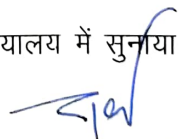 यालय में सुनाया